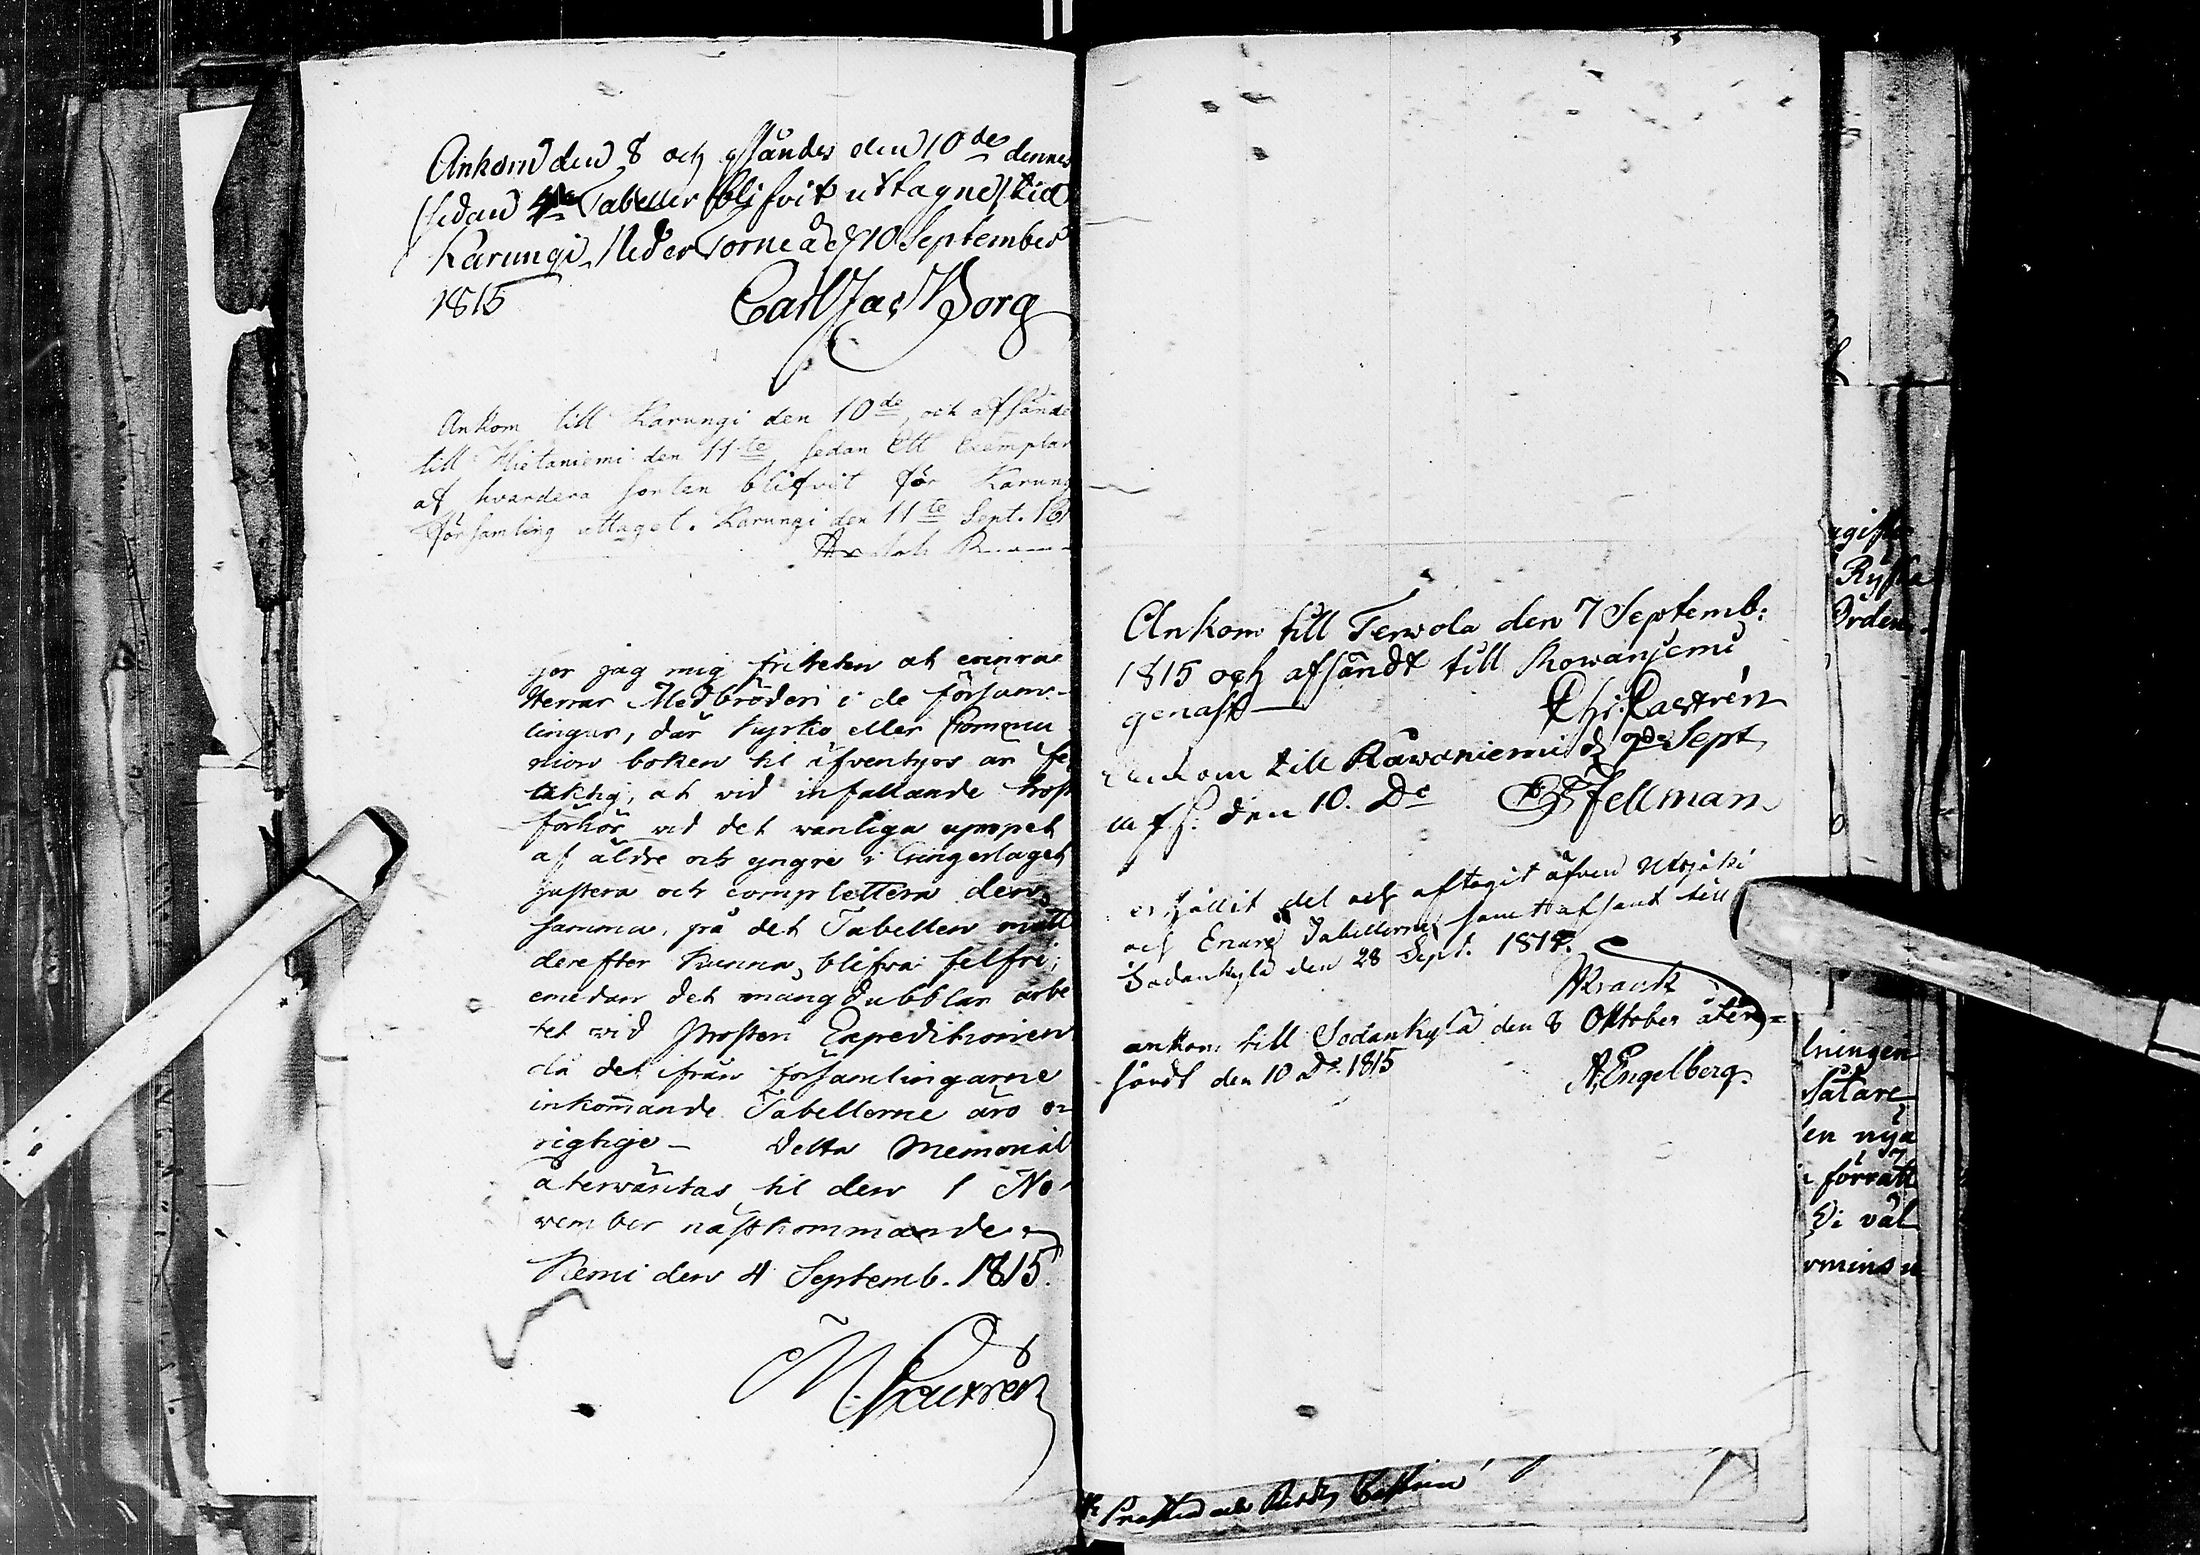 Ankom den 8 och afsändes den 10de dennes
sedan Tabeller blifvit uttagne, till
Karungi. Neder Torneå d 10 September
1815 Carl Jac Borg
Ankom till Karungi den 10de, och afsände
till Hietaniemi den 11te, sedan ett Exemplar
af hvardera sorten blifvit för Karung
församling uttaget. Karungi den 11te Sept. 181
gör jag mig friheten at erinra
Herrar Medbröder i de försam-
lingar, där Kyrko eller Commu
nion boken til äfventyrs är fe
laktig, at vid infallande
förhör vid det vanliga upropet
af äldre och yngre i
justera och complettera den
samma, på det Tabellen måtte
derefter kunna blifva felfri;
emedan det mångdubblar arbe
tet vid Prosteri Expeditionen
då det ifrån församlingarne
inkommande Tabellerne äro o-
rigtige - Detta Memorial
återväntas til den 1 No-
vember nästkommande
Kemi den 4 Septemb. 1815.
M. Castrén
Ankom till Terwola den 7 Septemb:
1815 och afsändt till Rowaniemi
genast Castrén
Ankom till Rawaniemi d 9de Sept
afs. den 10. Do Fellman
erhållit del och aftagit äfven Utsjoki
och Enare Tabellerne samt afsänt till
Sodankylä den 28 Sept. 1815.
ankom till Sodankylä den 8 Oktober åter-
sändt den 10 Do. 1815 A. Engelberg.
Ryska
Orden
lningen
såtare
en nya
i förrätt
Di väl
rmins